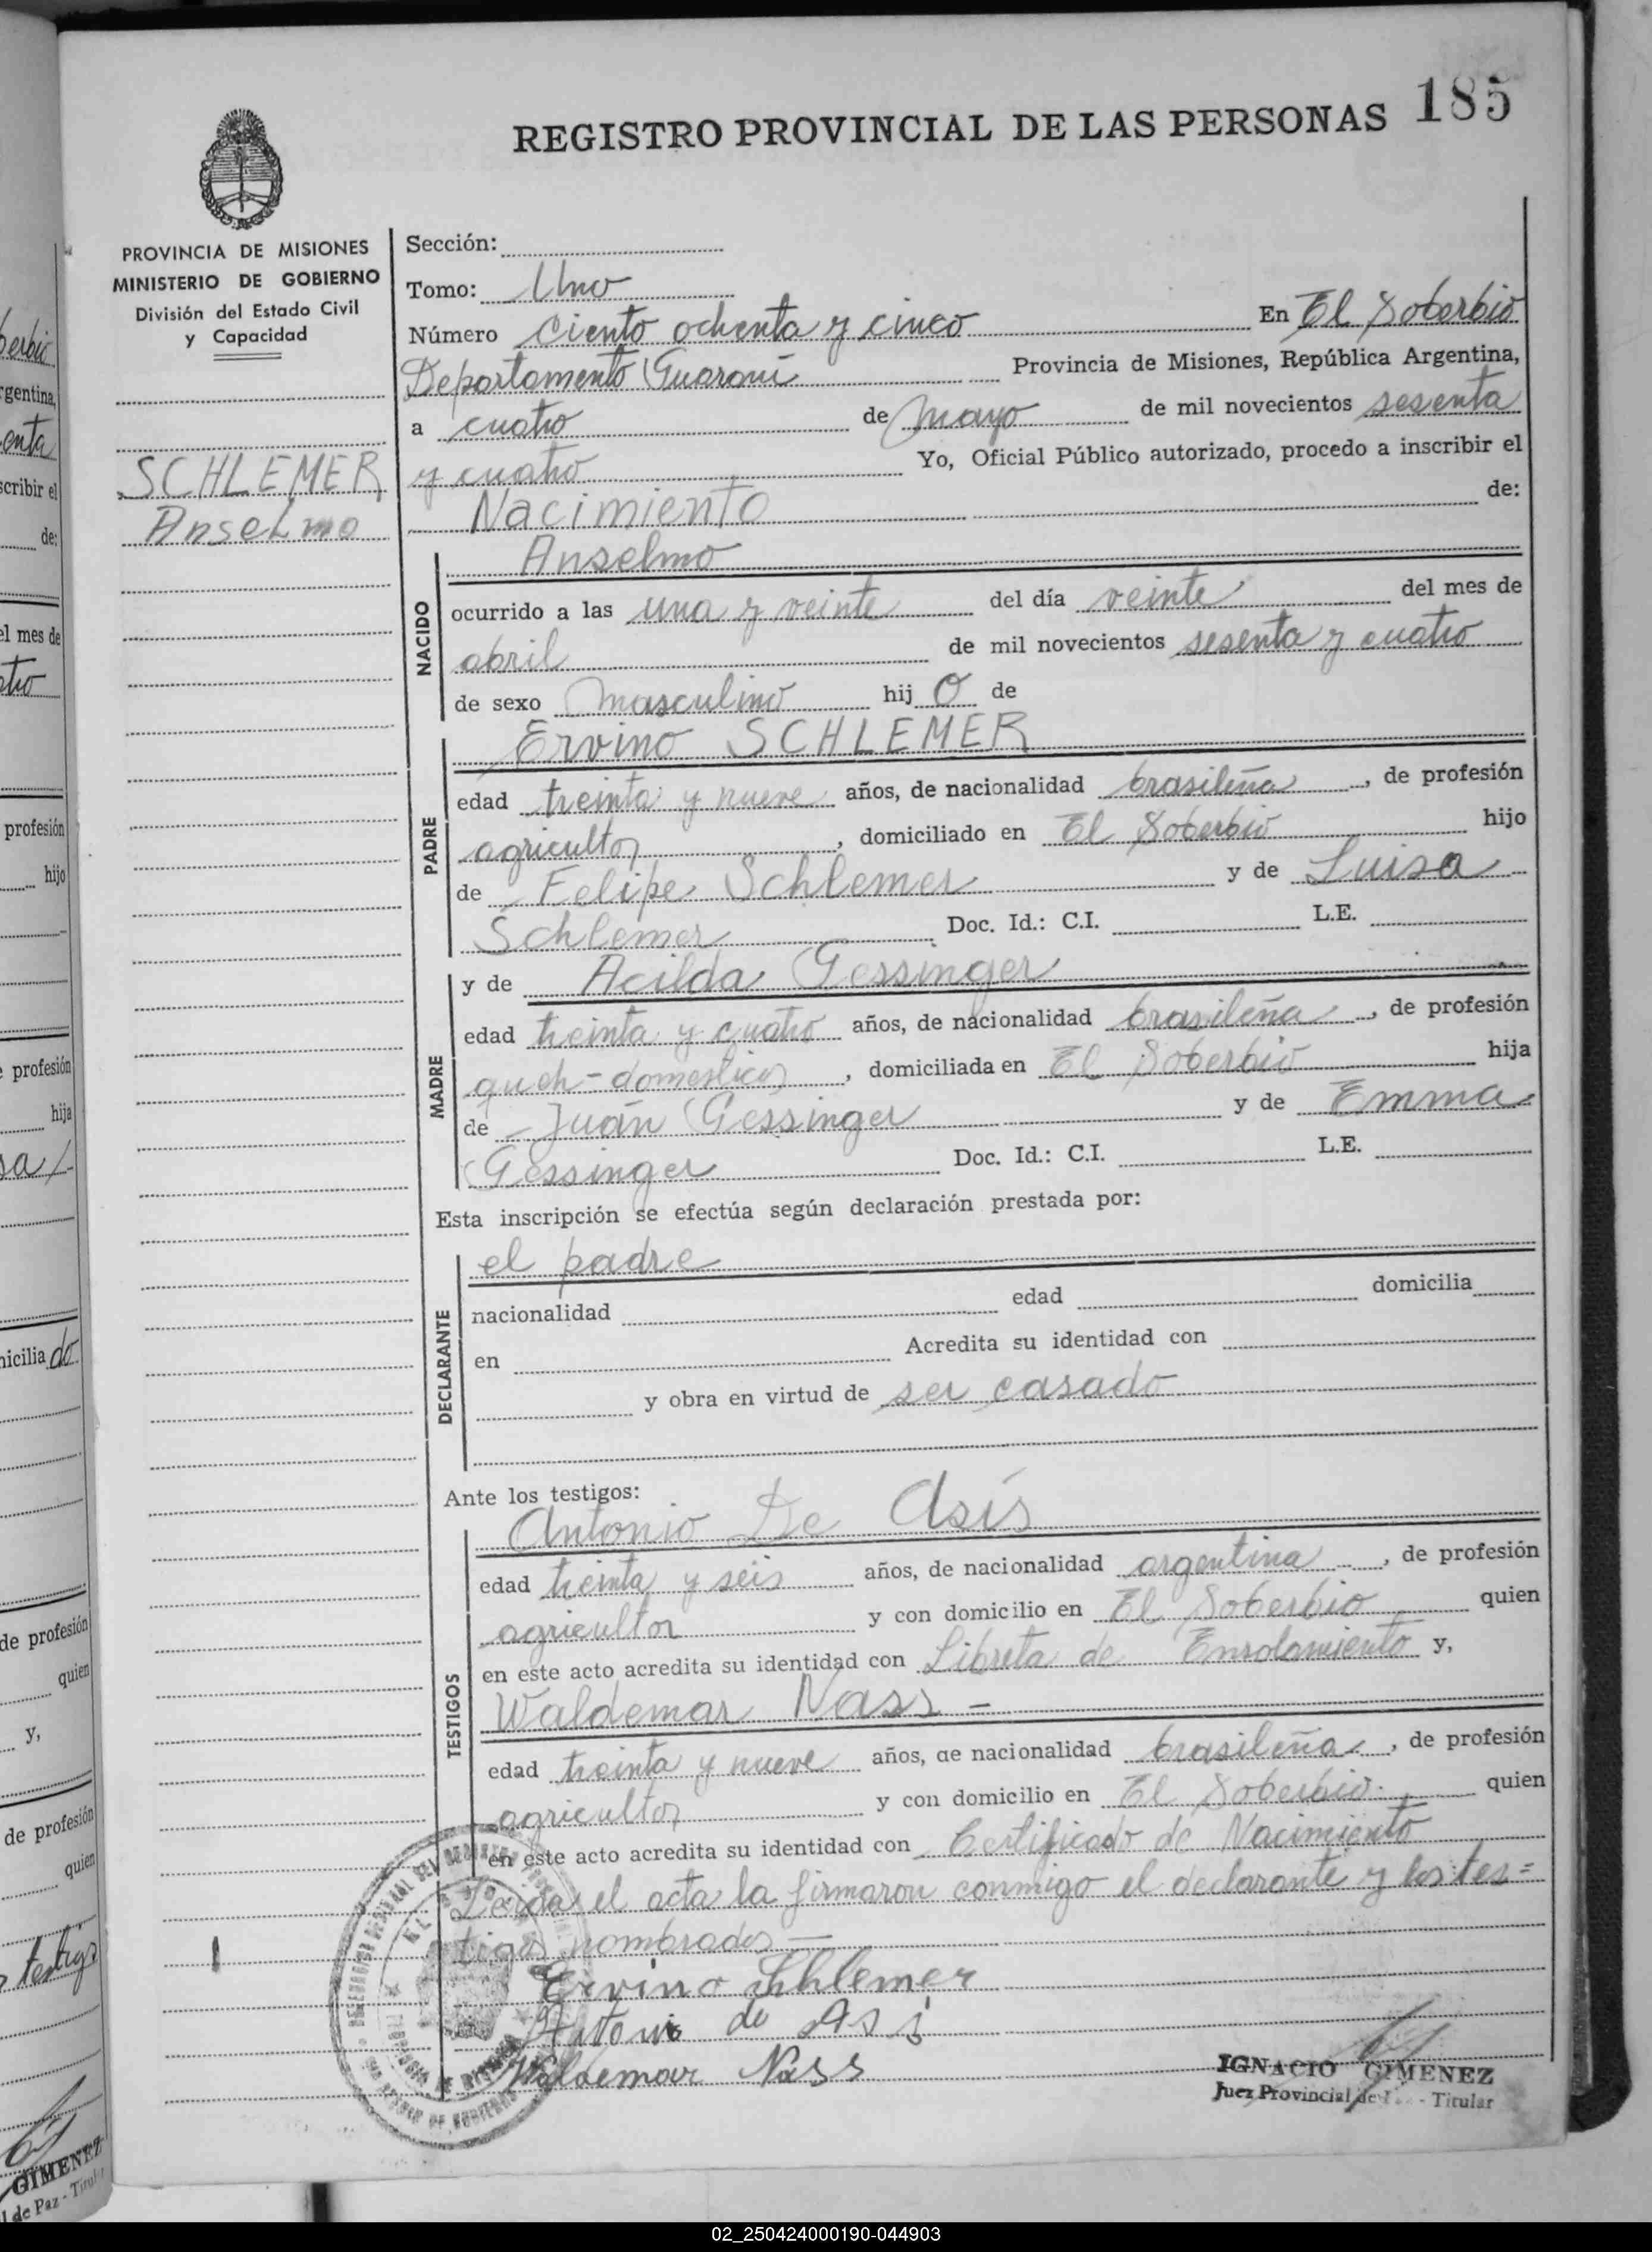 REGISTRO PROVINCIAL DE LAS PERSONAS 185
PROVINCIA DE MISIONES
MINISTERIO DE GOBIERNO
División del Estado Civil
y Capacidad
SCHLEMER
Anselmo
Sección:
Tomo: Uno
Número ciento ochenta y cinco En El Soberbio
Departamento Guaraní Provincia de Misiones, República Argentina,
a cuatro de mayo de mil novecientos sesenta
y cuatro Yo, Oficial Público autorizado, procedo a inscribir el
Nacimiento de:
Anselmo
NACIDO
ocurrido a las una y veinte del día veinte del mes de
abril de mil novecientos sesenta y cuatro
de sexo masculino hijo de
Ervino SCHLEMER
PADRE
edad treinta y nueve años, de nacionalidad brasileña, de profesión
agricultor, domiciliado en El Soberbio hijo
de Felipe Schlemer y de Luisa
Schlemer Doc. Id.: C.I. L.E.
y de Acilda Gessinger
MADRE
edad treinta y cuatro años, de nacionalidad brasileña, de profesión
queh-domesticos, domiciliada en El Soberbio hija
de Juán Gessinger y de Emma
Gessinger Doc. Id.: C.I. L.E.
Esta inscripción se efectúa según declaración prestada por:
el padre
DECLARANTE
nacionalidad edad domicilia
en Acredita su identidad con
y obra en virtud de ser casado
Ante los testigos:
Antonio De Asís
TESTIGOS
edad treinta y seis años, de nacionalidad argentina, de profesión
agricultor y con domicilio en El Soberbio quien
en este acto acredita su identidad con Libreta de Enrolamiento y,
Waldemar Nass -
edad treinta y nueve años, de nacionalidad brasileña, de profesión
agricultor y con domicilio en El Soberbio. quien
en este acto acredita su identidad con Certificado de Nacimiento
Leída el acta la firmaron conmigo el declarante y los tes=
tigos nombrados -
Ervino Schlemer
Antonio de Asi
Waldemar Nass
IGNACIO GIMENEZ
Juez Provincial de - Titular
02_250424000190-044903